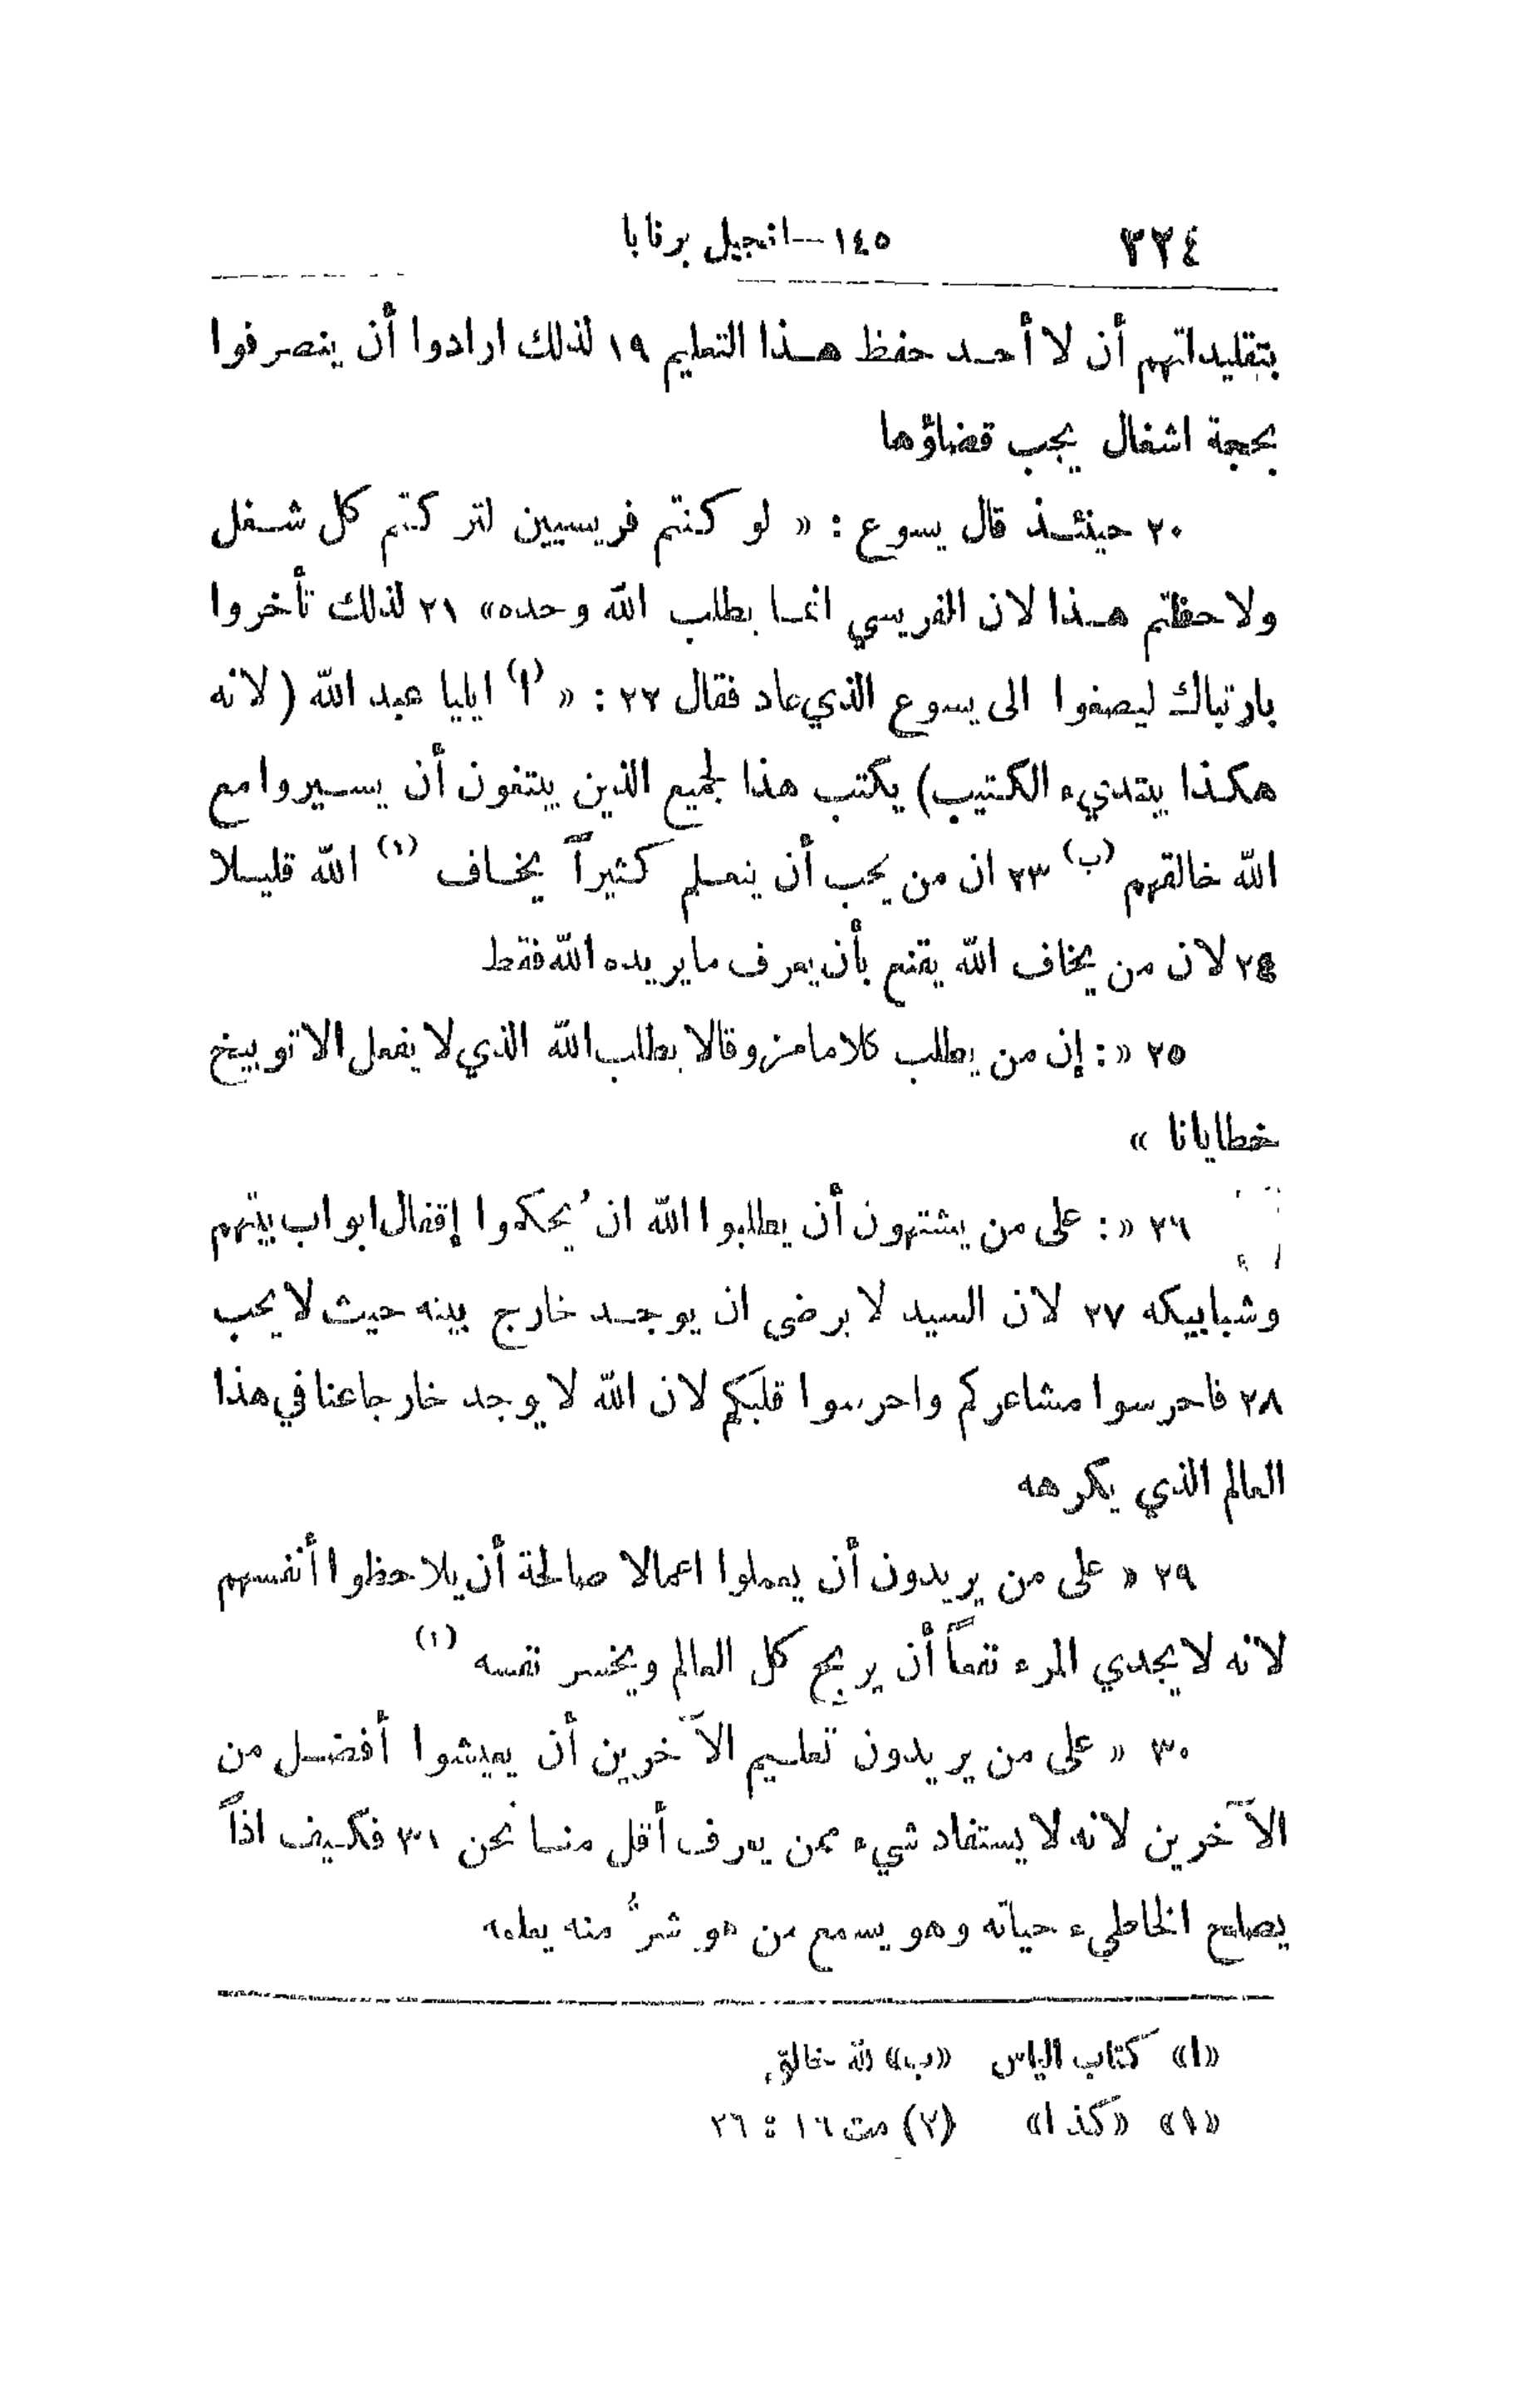 ٣٢٤ ١٤٥ — انجيل برنابا
بتقليداتهم أن لا أحد حفظ هذا التعليم ١٩ لذلك ارادوا أن ينصرفوا
بحجة اشغال يجب قضاؤها
٢٠ حينئذ قال يسوع : « لو كنتم فريسيين لتركتم كل شغل
ولاحظتم هذا لان الفريسي انما يطلب الله وحده» ٢١ لذلك تأخروا
بارتباك ليصغوا الى يسوع الذي عاد فقال ٢٢ : « (ا) ايليا عبد الله ( لانه
هكذا يبتديء الكتيب) يكتب هذا لجميع الذين يبتغون أن يسيروا مع
الله خالقهم (ب) ٢٣ ان من يحب أن يتعلم كثيراً يخاف (١) الله قليلا
٢٤ لان من يخاف الله يقنع بأن يعرف ما يريده الله فقط
٢٥ « : إن من يطلب كلاما مزوقا لا يطلب الله الذي لا يفعل الا توبيخ
خطايانا »
٢٦ « : على من يشتهون أن يطلبوا الله ان ُيحكموا إقفال ابواب بيتهم
وشبابيكه ٢٧ لان السيد لا يرضى ان يوجد خارج بيته حيث لا يحب
٢٨ فاحرسوا مشاعركم واحرسوا قلبكم لان الله لا يوجد خارجا عنا في هذا
العالم الذي يكرهه
٢٩ « على من يريدون أن يعملوا اعمالا صالحة أن يلاحظوا أنفسهم
لانه لا يجدي المرء نفعاً أن يربح كل العالم ويخسر نفسه (٢)
٣٠ « على من يريدون تعليم الآخرين أن يعيشوا أفضل من
الآخرين لانه لا يستفاد شيء ممن يعرف أقل منا نحن ٣١ فكيف اذاً
يصلح الخاطيء حياته وهو يسمع من هو شرٌ منه يعلمه
«ا» كتاب الياس «ب» لله خالق
«١» «كذا» (٢) مت ١٦ : ٢٦